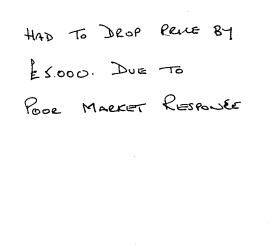 HAD TO DROP PRICE BY
£5.000. DUE TO
POOR MARKET RESPONSE